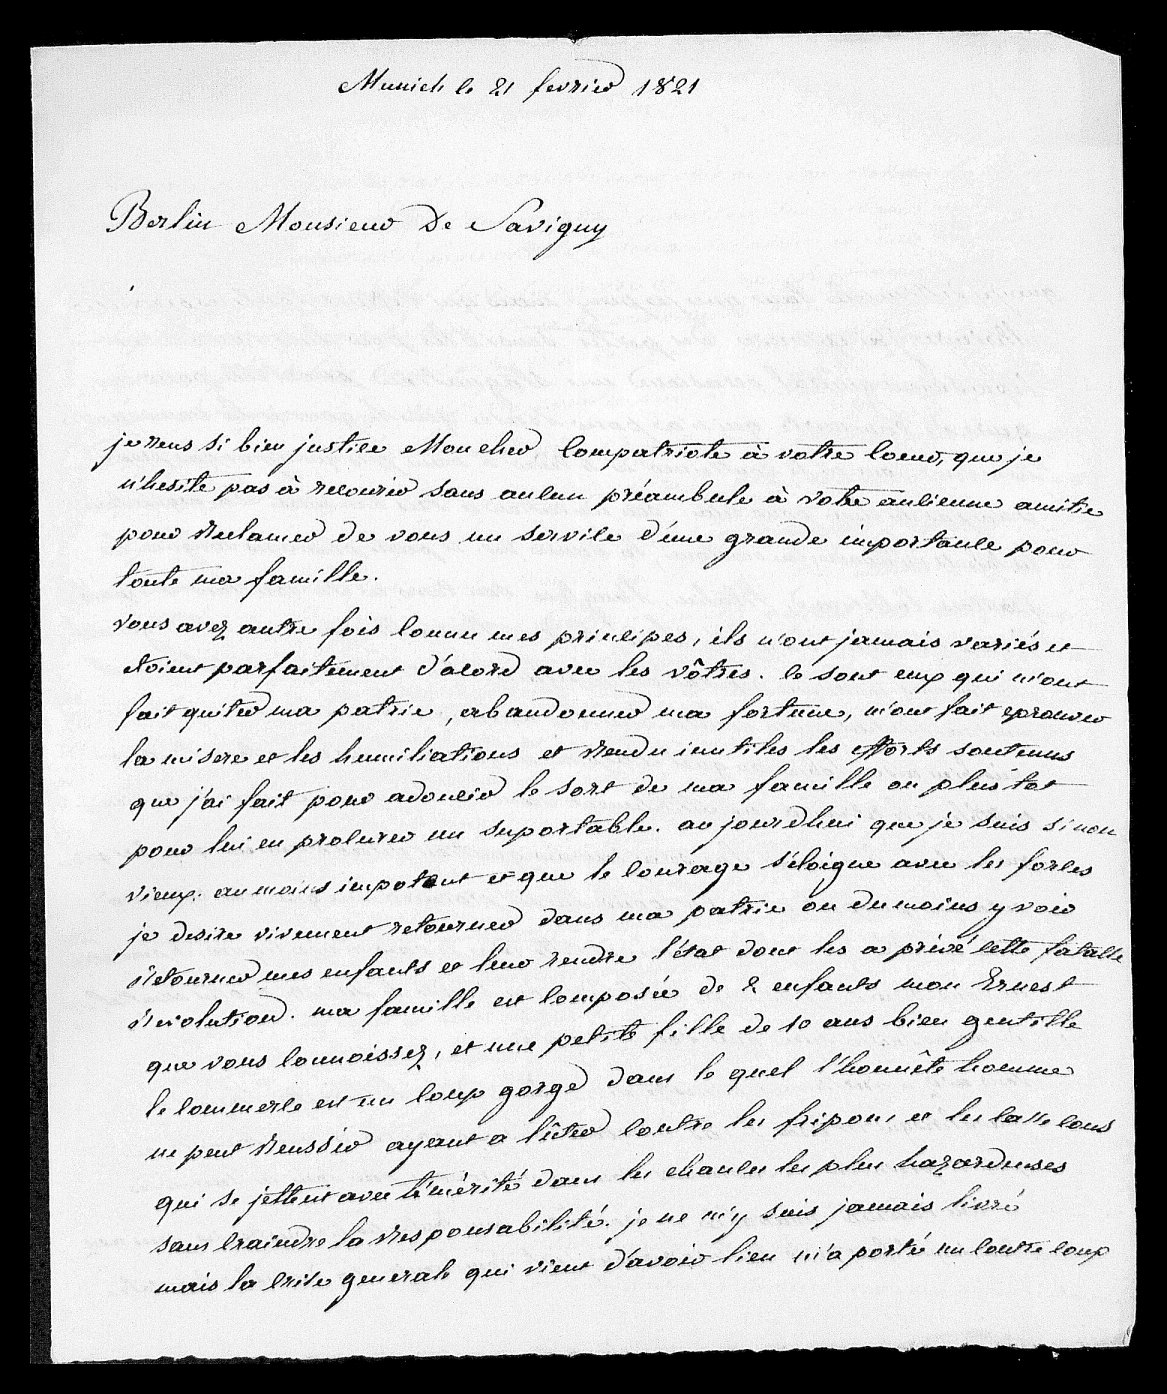 Munich le 21 fevrier 1821
Berlin Monsieur De Savigny
je rens si bien justice Mon cher Compatriote à votre coeur, que je
n'hesite pas à recourir sans aucun préambule à votre ancienne amitie
pour reclamer de vous un service d'une grande importance pour
toute ma famille.
vous avez autre fois connu mes principes, ils n'ont jamais variés et
etoient parfaitement d'acord avec les vôtres. ce sont eux qui m'ont
fait quiter ma patrie, abandonner ma fortune, m'ont fait eprouver
la misere et les humiliations et rendu inutiles les efforts soutenus
que j'ai fait pour adoucir le sort de ma famille ou plus tot
pour lui en procurer un suportable. aujourdhui que je suis sinon
vieux. au moins impotent et que le courage s'eloigne avec les forces
je desire vivement retourner dans ma patrie ou du moins y voir
retourner mes enfants et leur rendre l'état dont les a privé cette fatalle
revolution. ma famille est composée de 2 enfants mon Ernest
que vous connoissez, et une petite fille de 10 ans bien gentille
le commerce est un coup gorge dans le quel l'honnête homme
ne peut reussir ayant a luter contre les fripons et les casse cous
qui se jettent avec témérité dans les chances les plus hazardeuses
sans craindre la responsabilité. je ne m'y suis jamais livré
mais la crise generale qui vient d'avoir lieu m'a porté un contre coup